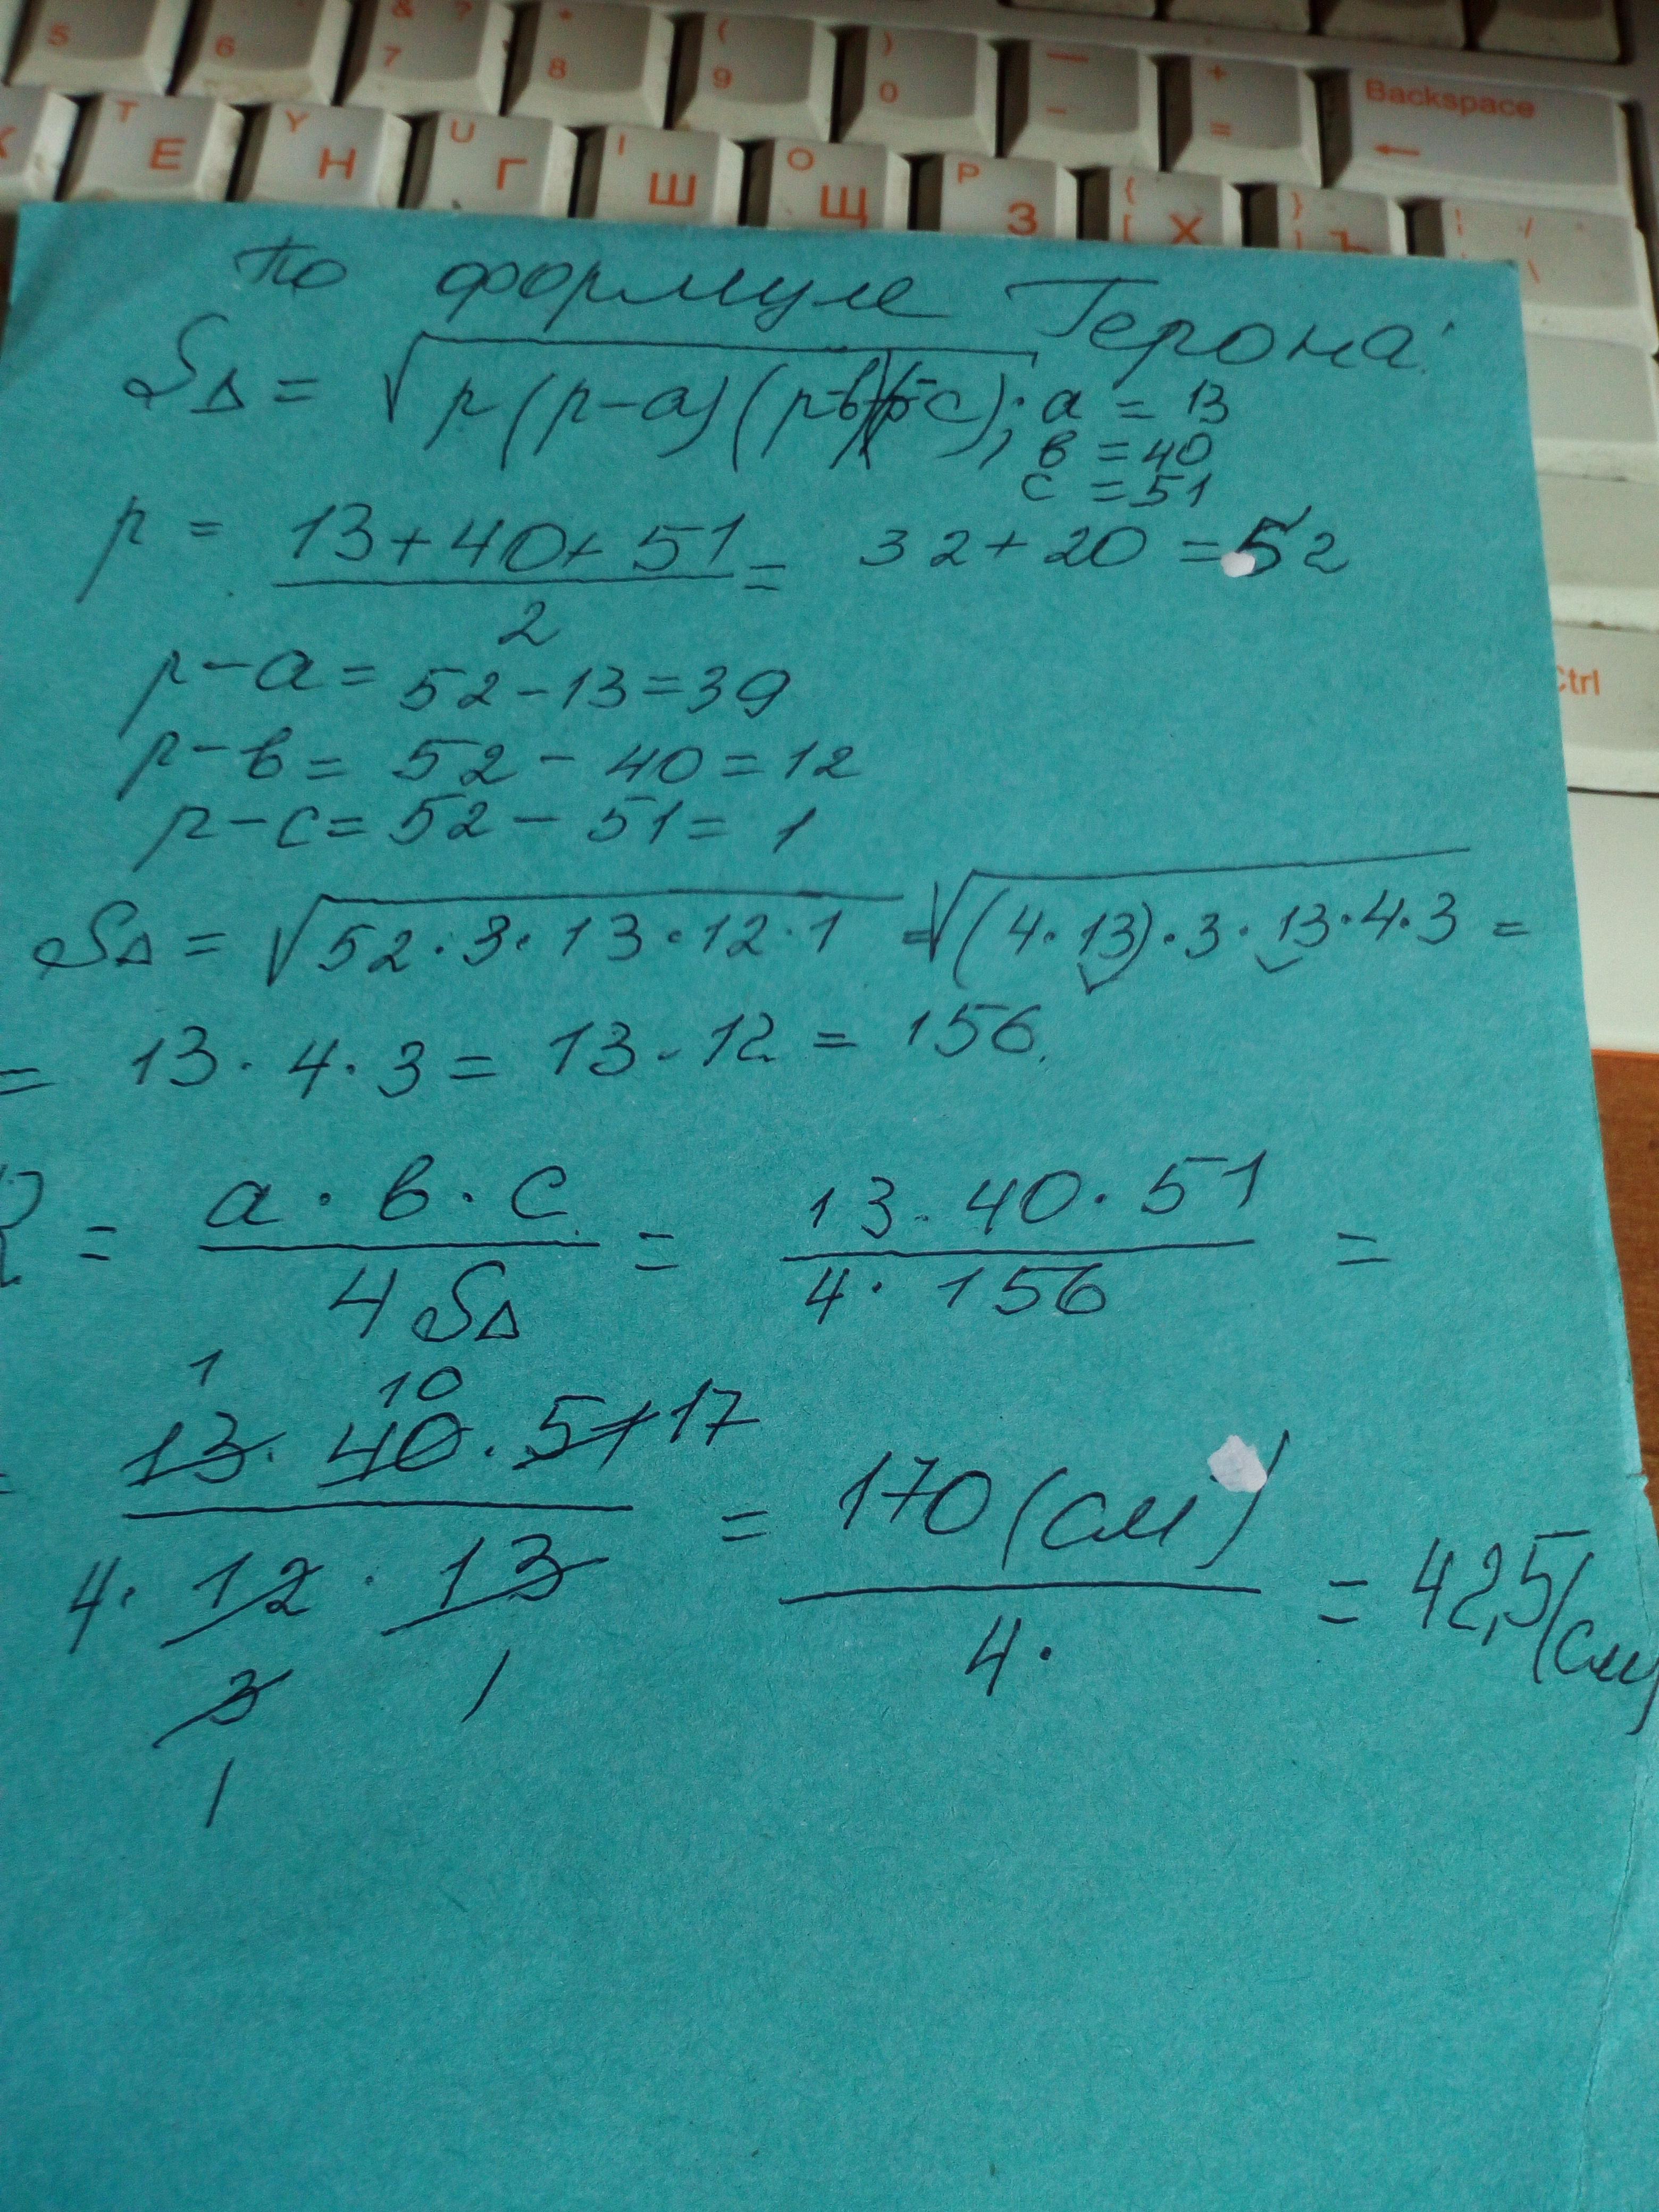 5 6 & 7 ? * 8 ( 9 ) 0 — - + = Backspace
T Е Y Н U Г I Ш O Щ P З { [ Х } ] Ъ | / \
Ctrl
По формуле Герона:
S△ = √p(p-a)(p-в)(p-c); a = 13
в = 40
c = 51
p = (13+40+51)/2 = 32+20 = 52
p-a = 52-13=39
p-в = 52 - 40 = 12
p-c = 52 - 51 = 1
S△ = √52·3·13·12·1 = √(4·13)·3·13·4·3 =
= 13·4·3 = 13·12 = 156.
R = a·в·c / 4S△ = 13·40·51 / 4·156 =
1 10
= 13·40·51 17 / 4·12·13 = 170(см) / 4· = 42,5(см)
3 1
1